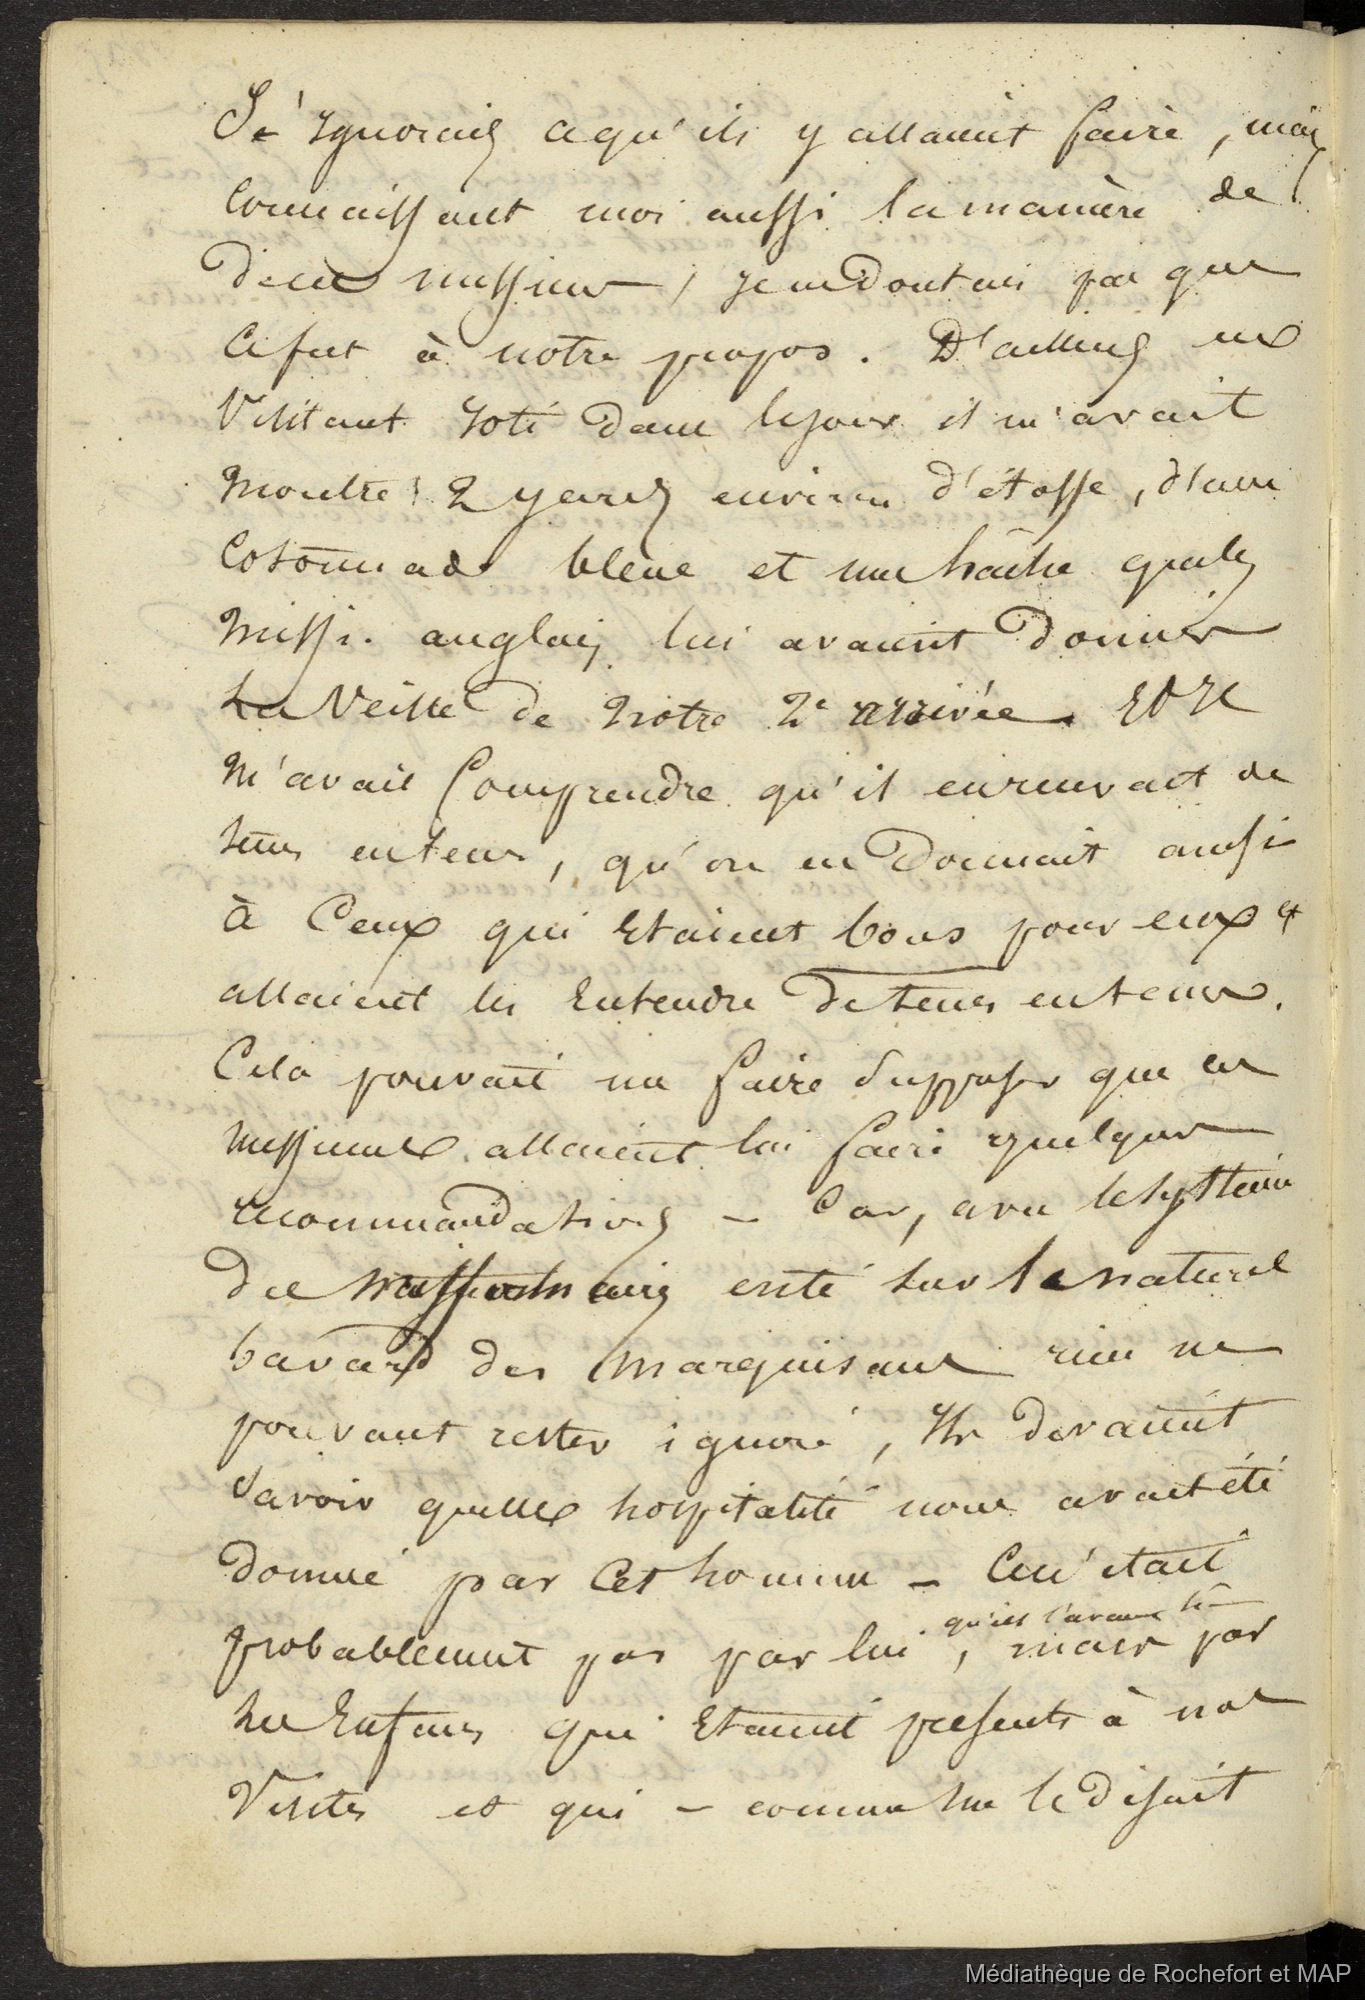 J'ignorais ce qu'ils y allaient faire, mais
connaissant moi aussi la manière de
deces messieurs, je ne doutais pas que
ce fut à notre propos. D'ailleurs en
visitant Ioté dans le jour il m'avait
montré 2 yards environ d'étoffe, d'une
cotonnade bleue et une hache que les
missi. anglais lui avaient donnés
la veille de notre 2e arrivée.
m'avait comprendre qu'il en recevait de
tems entems, qu'on en donnait aussi
à Ceux qui Etaient bons pour eux et
allaient les Entendre detems entems.
Cela pouvait me faire supposer que ces
messieurs allaient lui faire quelques
recommandations – Car, avec le système
des missionnaires enté sur le naturel
bavard des Marquisans rien ne
pouvant rester ignoré, Ils devaient
savoir quelle hospitalité nous avait été
donné par Cet homme – Ce n'était
qu'ils l'avaient
probablement pas par lui, mais par
les Enfans qui Etaient présents à nos
Visites et qui – comme me le disait
Médiathèque de Rochefort et MAP